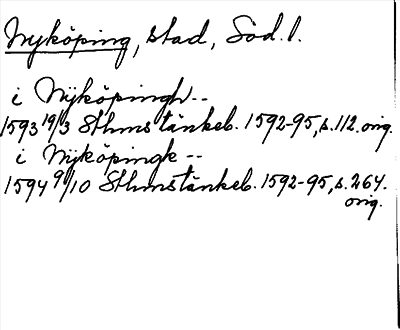 Nyköping, stad, Söd. l.
i Nÿköpingh--
1593 19/3 Sthms tänkeb. 1592-95, s. 112. orig.
i Nÿköpingk --
1594 9/10 Sthms tänkeb. 1592-95, s. 264.
orig.